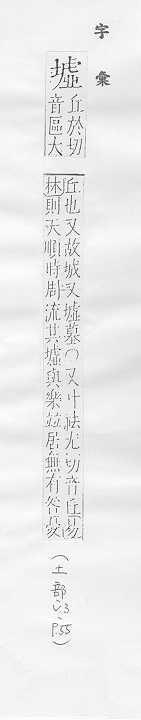 字彙
墟
丘於切
音區大
丘也又故城又墟墓○又叶祛尤切音丘易
林則天順時周流其墟與樂並居無有咎憂
(土部ㄆ3、P.55)